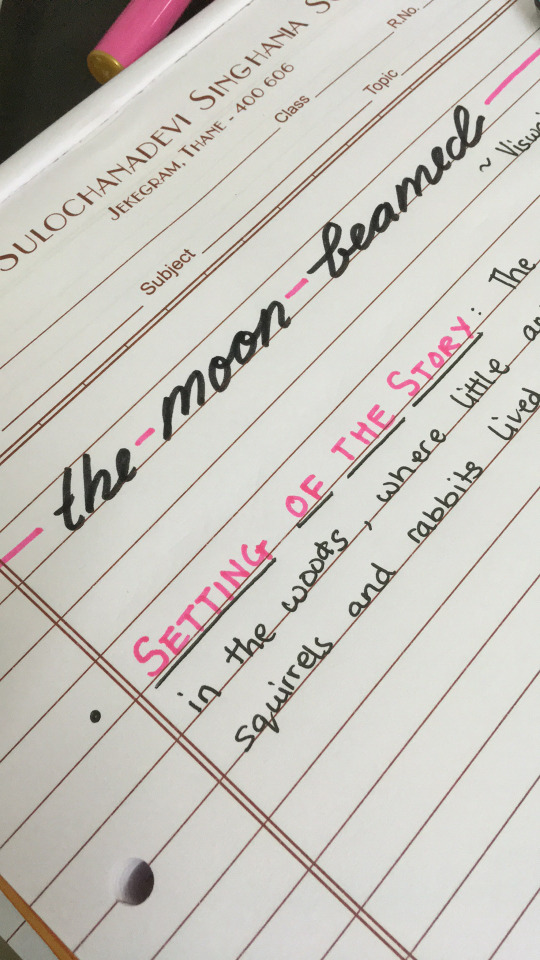 SULOCHANADEVI SINGHANIA
JEKEGRAM, THANE - 400 606
R.No.
Class
Topic
Subject
the - moon - beamed
~
SETTING OF THE STORY: The
in the woods, where little
squirrels and rabbits lived